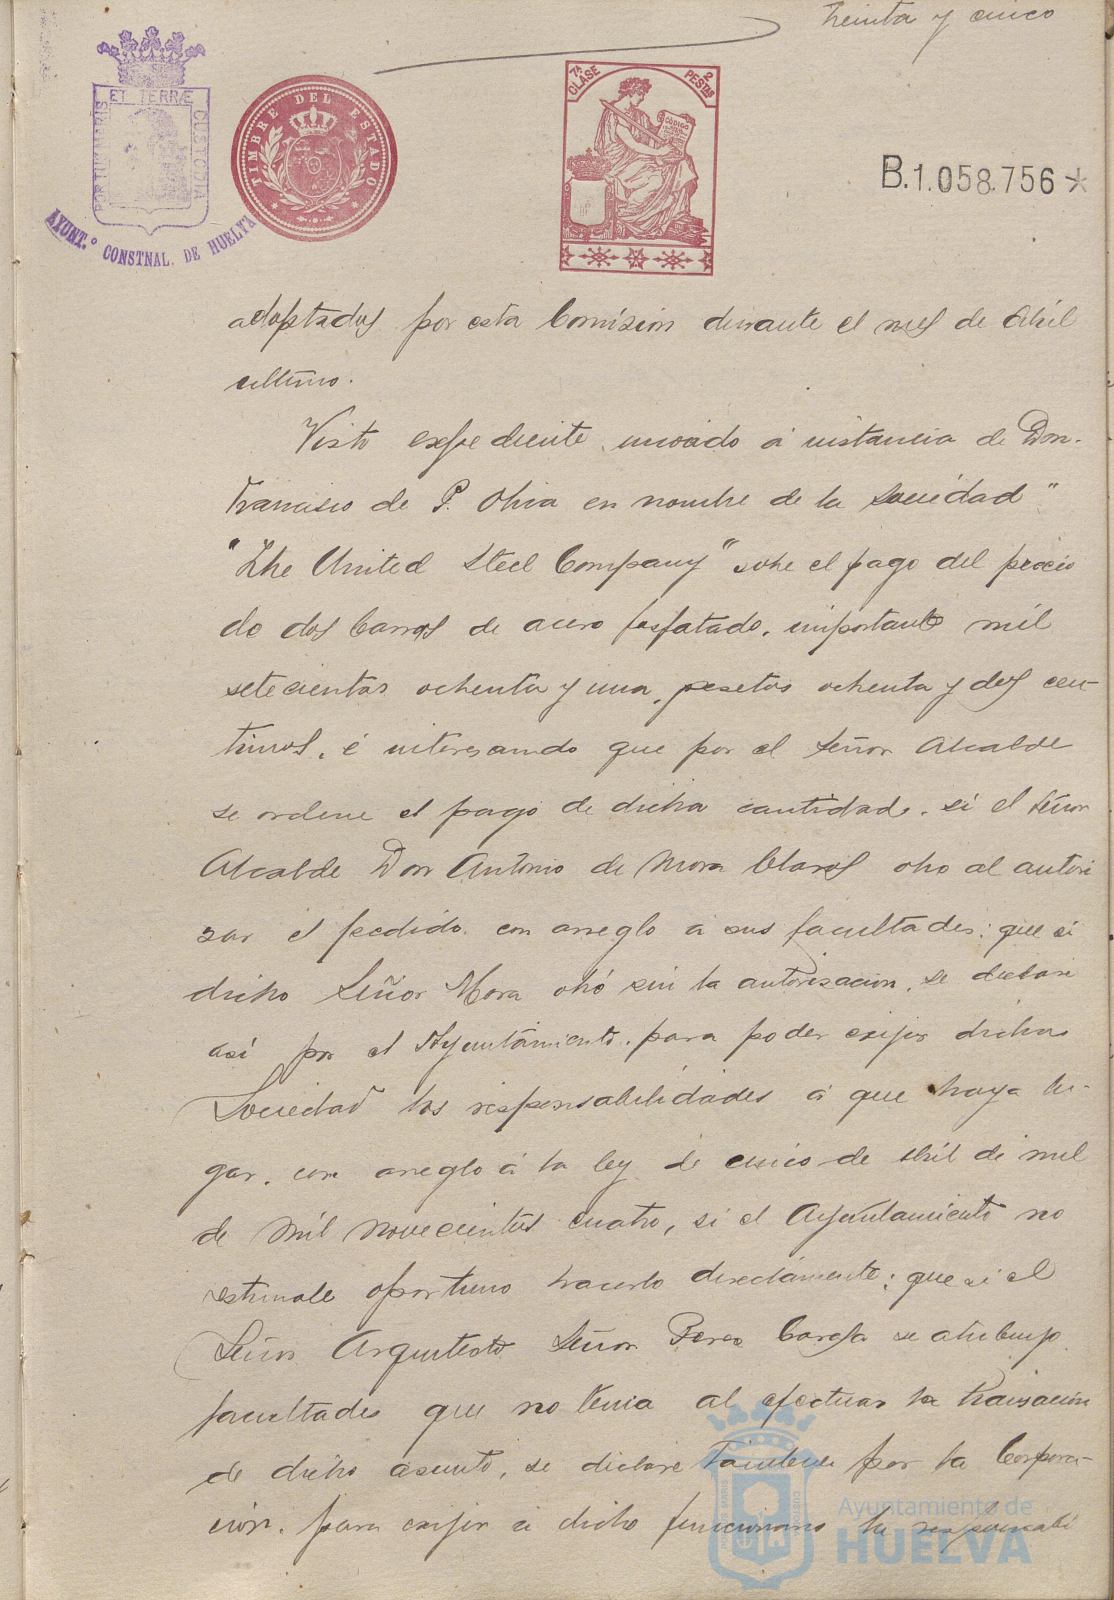 treinta y cinco
ET TERRÆ
PORTUS MARIS
CUSTODIA
AYUNT.º CONSTNAL. DE HUELVA
TIMBRE DEL ESTADO
7ª CLASE
2 PESTAS
CÓDIGO
B.1.058.756*
adoptados por esta Comision durante el mes de Abril
ultimo.
Visto expediente incoado á instancia de Don
Francisco de P. Oliva en nombre de la Sociedad "
"The United Steel Company" sobre el pago del precio
do dos barras de acero fosfatado, importante mil
setecientas ochenta y una, pesetas ochenta y dos cen-
timos, é interesando que por el Señor Alcalde
se ordene el pago de dicha cantidad, si el Señor
Alcalde Don Antonio de Mora Claros obo al autori
zar el pedido con arreglo á sus facultades; que si
dicho Señor Mora obó sin la autorizacion, se declare
así por el Ayuntamiento, para poder exijir dicha
Sociedad las responsabilidades á que haya lu-
gar, con arreglo á la ley de cinco de Abril de mil
de mil novecientos cuatro, si el Ayuntamiento no
estimase oportuno hacerlo directamente; que si el
Señor Arquitecto Señor Perez Carasa se atribuyo
facultades que no tenia al efectuar la transacion
de dicho asunto, se declare tambien por la Corpora-
cion, para exijir á dicho funcionario la responsabi
Ayuntamiento de
HUELVA